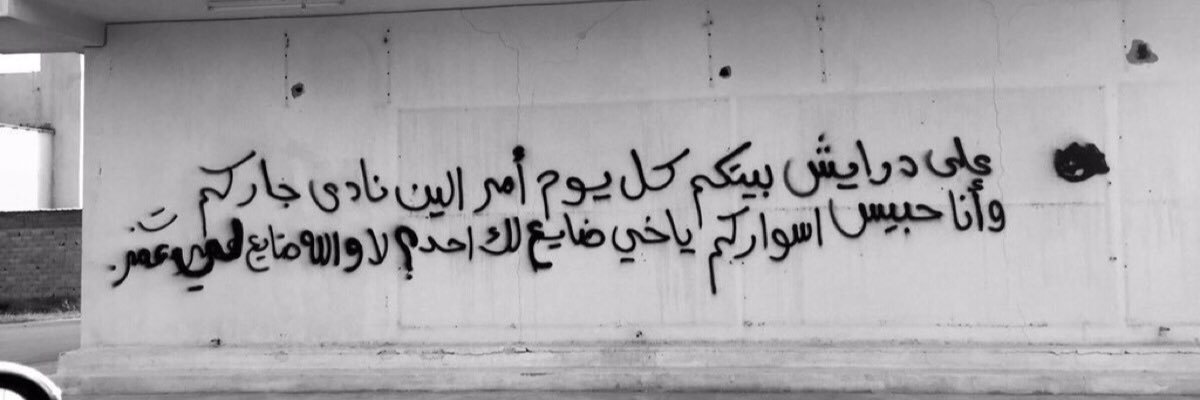 على درايش بيتكم كل يوم أمر الين نادى جاركم
وأنا حبيس اسواركم ياخي ضايع لك احد؟ لا والله ضايع لي عمر.